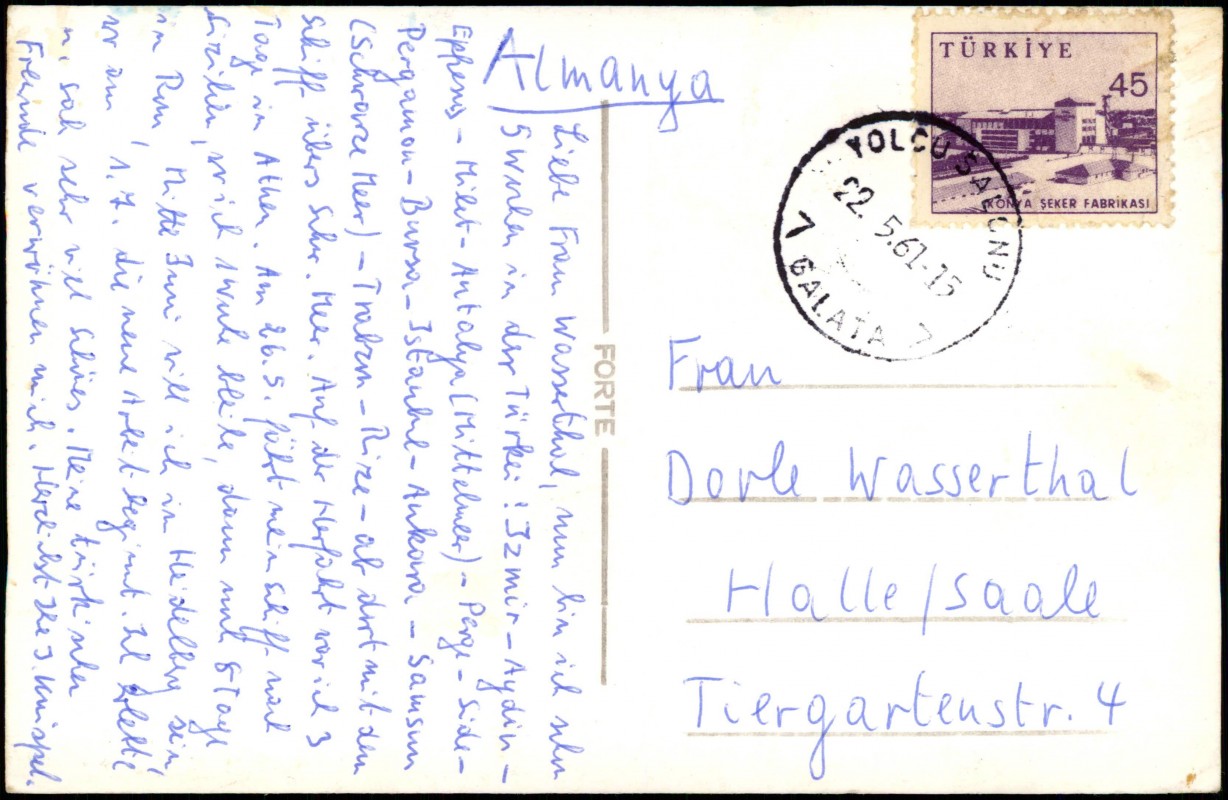 Almanya
Liebe Frau Wasserthal, nun bin ich schon
5 Wochen in der Türkei! Izmir - Aydin -
Ephesus - Milet - Antalya (Mittelmeer) - Perge - Side -
Pergamon - Bursa - Istanbul - Ankara - Samsun
(Schwarze Meer) - Trabzon - Rize - ab dort mit dem
Schiff übers Schw. Meer. Auf der Herfahrt war ich 3
Tage in Athen. Am 26.5. fährt mein Schiff nach
Sizilien, wo ich 1 Woche bleibe, dann noch 8 Tage
in Rom, Mitte Juni will ich in Heidelberg sein,
wo am 1.7. die neue Arbeit beginnt. Ich erlebte
u. sah sehr viel Schönes. Meine türkischen
Freunde verwöhnen mich. Herzlichst Ihre
FORTE
TÜRKİYE
45
KONYA ŞEKER FABRİKASI
YOLCU SALONU
22.5.61-15
7 GALATA 7
Frau
Dorle Wasserthal
Halle/Saale
Tiergartenstr. 4